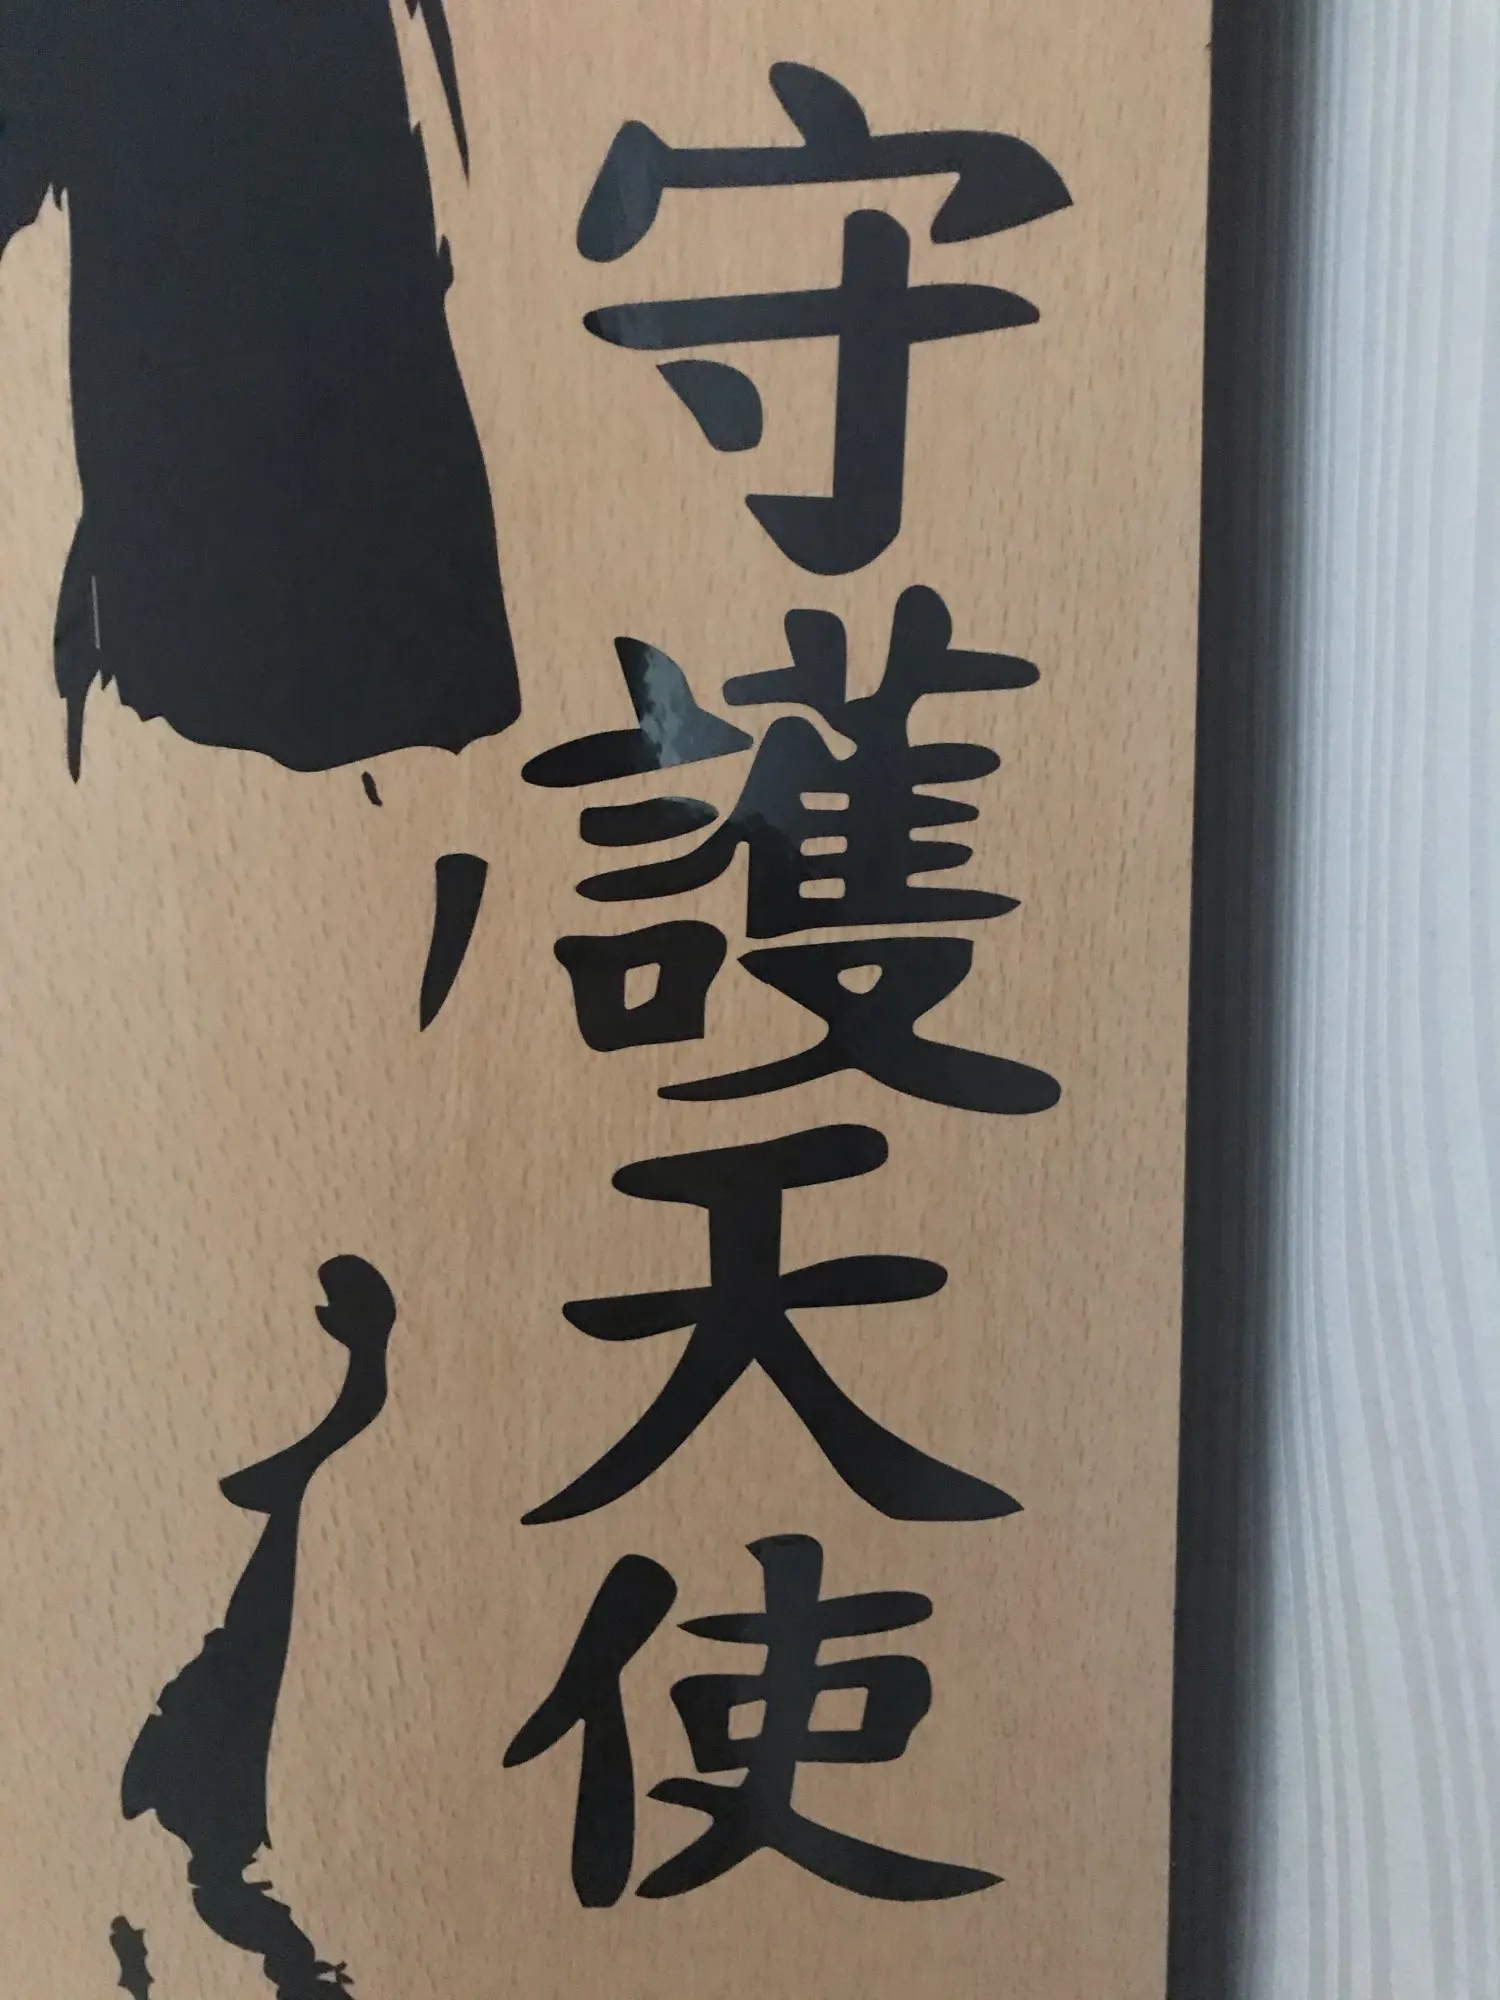 守護天使